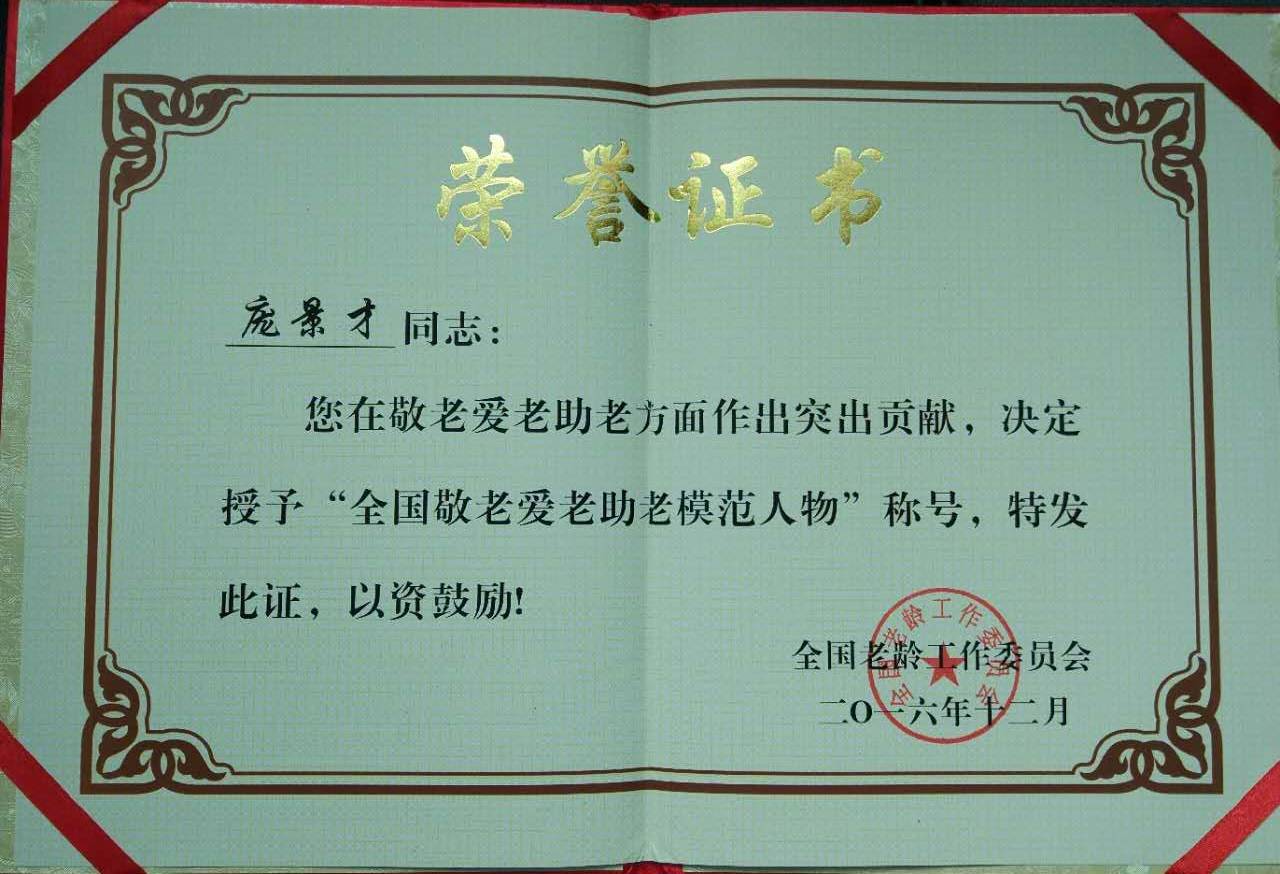 荣誉证书
庞景才同志：
您在敬老爱老助老方面作出突出贡献，决定
授予“全国敬老爱老助老模范人物”称号，特发
此证，以资鼓励！
全国老龄工作委员会
二〇一六年十二月
全国老龄工作委员会